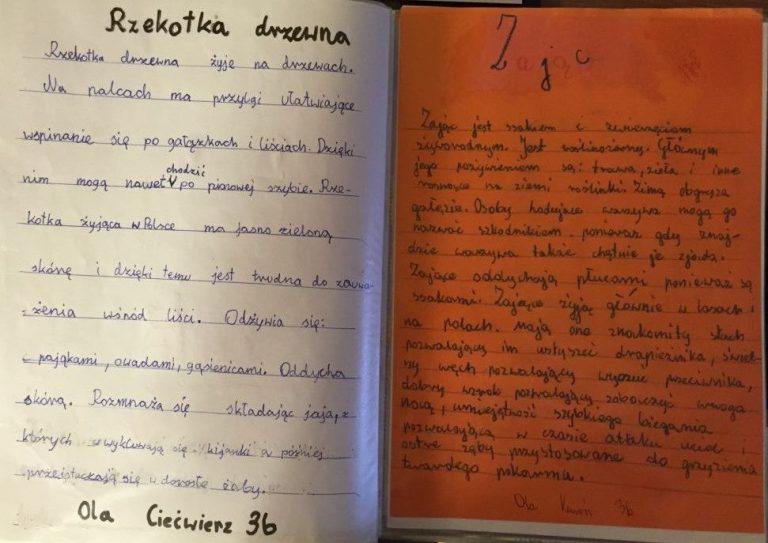 Rzekotka drzewna
Rzekotka drzewna żyje na drzewach.
Na palcach ma przylgi ułatwiające
wspinanie się po gałązkach i liściach. Dzięki
nim mogą nawet chodzić po pionowej szybie. Rze-
kotka żyjąca w Polsce ma jasno zieloną
skórę i dzięki temu jest trudna do zauwa-
-żenia wśród liści. Odżywia się:
- pająkami, owadami, gąsienicami. Oddycha
skórą. Rozmnaża się składając jaja, z
których wykluwają się kijanki a później
przeistaczają się w dorosłe żaby.
Ola Ciećwierz 3b
Zając
Zając jest ssakiem i zwierzęciem
żyworodnym. Jest roślinożerny. Głównym
jego pożywieniem są: trawa, zioła i inne
rosnące na ziemi roślinki. Zimą obgryza
gałęzie. Osoby hodujące warzywa mogą go
nazwać szkodnikiem, ponieważ gdy znaj-
dzie warzywa także chętnie je zjada.
Zające oddychają płucami ponieważ są
ssakami. Zające żyją głównie w lasach i
na polach. Mają one znakomity słuch
pozwalający im usłyszeć drapieżnika, świet-
ny węch pozwalający wyczuć przeciwnika,
dobry wzrok pozwalający zobaczyć wroga
nocą, umiejętność szybkiego biegania
pozwalającą w czasie ataku uciec i
ostre zęby przystosowane do gryzienia
twardego pokarmu.
Ola 3b